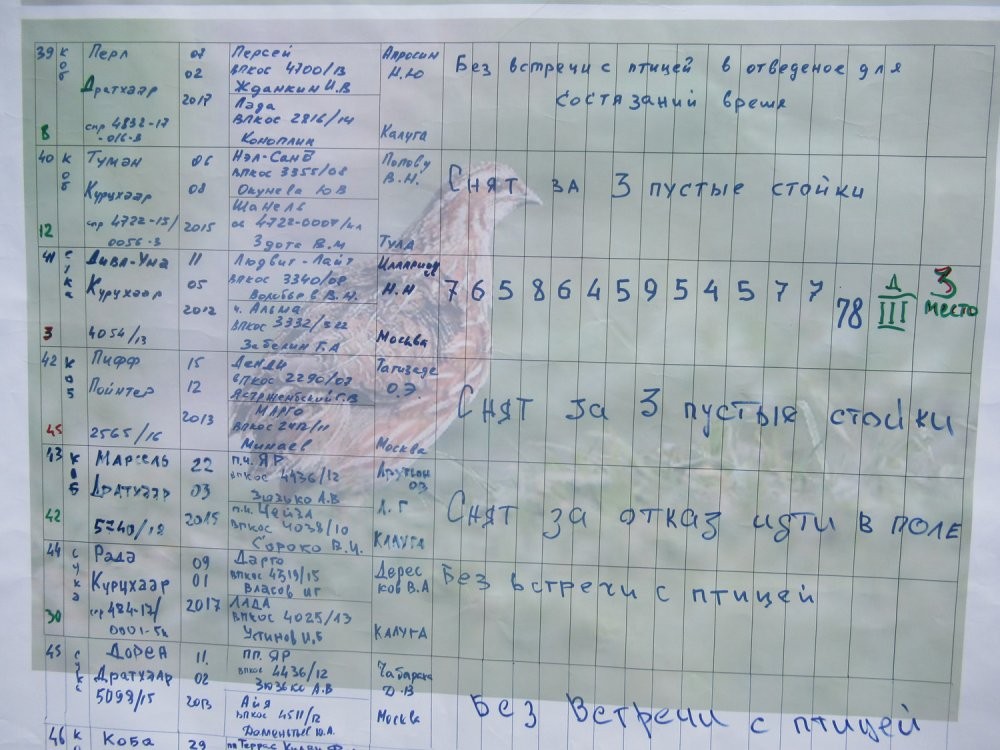 39 коб Перл 02 Персей Апросин Без встречи с птицей в отведеное для
02 ВПКОС 4700/13 Н.Ю состязаний время
Дратхаар 2017 Жданкин И.В
Лада
8 спр 4832-17 ВПКОС 2816/14 Калуга
-016-3 Коноплин
40 коб Туман 06 Нэл-Сан Попову Снят за 3 пустые стойки
ВПКОС 3355/08 В.Н.
Курцхаар 08 Окунева Ю.В
Шанель
12 спр 4722-15/ 2015 4722-0007/
0056-3 Здота В.М Тула
41 сука Дива-Ума 11 Людвиг-Лайт
Курцхаар 05 ВПКОС 3340/09 Н.Н 7 6 5 8 6 4 5 9 5 4 5 7 7 78 Д III 3 место
2012 ч. Альма
3 4054/13 ВПКОС 3332/ Москва
Забелин Г.А
42 коб Пифф 15 Денди Тагизаде Снят за 3 пустые стойки
Пойнтер 12 ВПКОС 2290/07 О.Э.
Астрженбский Г.В
2013 Марго
45 2565/16 ВПКОС 2412/11 Москва
Минаев
43 коб Марсель 22 п.ч. Яр Снят за отказ идти в поле
Дратхаар 03 ВПКОС 4436/12
Зюзько А.В А.Г
42 5740/18 2015 п.к. Чейза
ВПКОС 4038/10 Калуга
Сороко В.И.
44 сука Рада 09 Дарго Дерес Без встречи с птицей
Курцхаар 01 ВПКОС 4319/15 ков В.А
Власов ИГ
спр 484-17/ 2017 Лада
30 0001- ВПКОС 4025/13 Калуга
Устинов И.Б
45 сука Дорен 11. пп. Яр Без встречи с птицей
Дратхаар 02 ВПКОС 4436/12 О.В
5098/15 Зюзько А.В
2013 Айя Москва
ВПКОС 4511/12
Доментьев Ю.А.
46 Коба 29